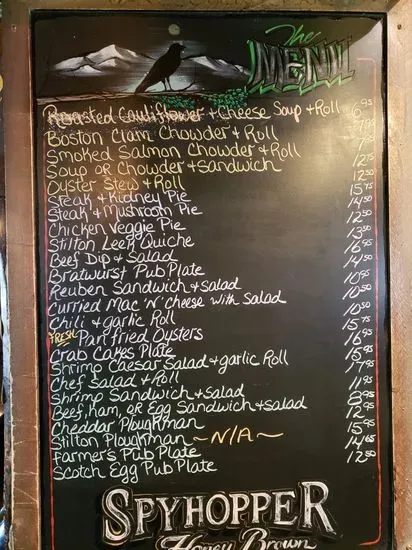 The MENU
Roasted Cauliflower + Cheese Soup + Roll 6.95
Boston Clam Chowder + Roll 7.95
Smoked Salmon Chowder + Roll 7.95
Soup or Chowder + Sandwich 12.75
Oyster Stew + Roll 12.50
Steak & Kidney Pie 15.75
Steak & Mushroom Pie 14.50
Chicken Veggie Pie 12.50
Stilton Leek Quiche 13.50
Beef Dip + Salad 16.95
Bratwurst Pub Plate 14.50
Reuben Sandwich + salad 10.95
Curried Mac 'N' Cheese with Salad 10.50
Chili + garlic Roll 10.50
FRESH Pan fried Oysters 15.75
Crab Cakes Plate 16.95
Shrimp Caesar Salad + garlic Roll 15.95
Chef Salad + Roll 17.95
Shrimp Sandwich + salad 11.95
Beef, ham, or Egg Sandwich + salad 8.95
Cheddar Ploughman 12.95
Stilton Ploughman ~N/A~ 15.95
Farmer's Pub Plate 14.65
Scotch Egg Pub Plate 12.50
SPYHOPPER
Honey Brown